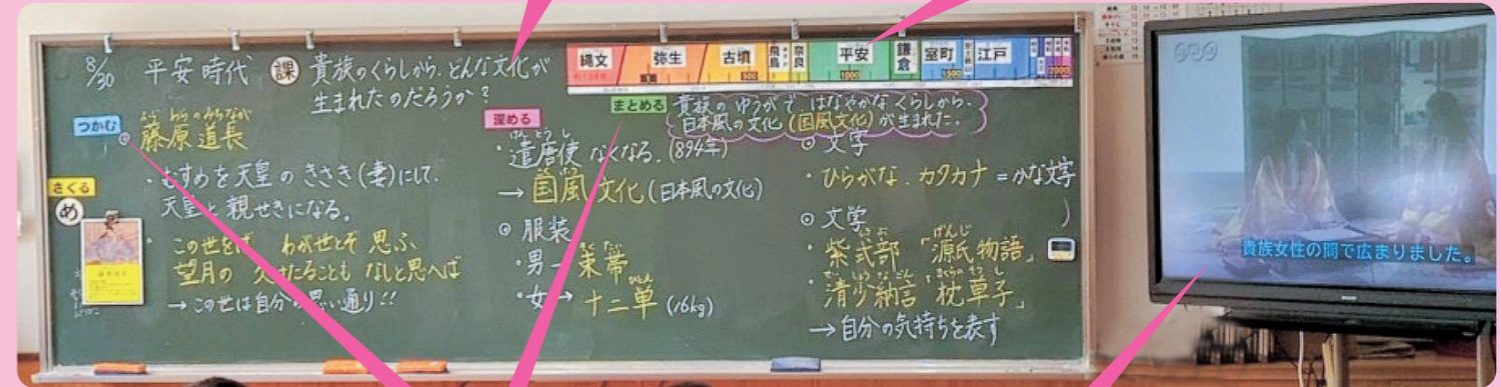 8/30 平安時代 課 貴族のくらしから、どんな文化が
生まれたのだろうか?
縄文 弥生 古墳 飛鳥 奈良 平安 鎌倉 室町 江戸
500 1000 2000
つかむ
ふじわらのみちなが
◎藤原道長
・むすめを天皇のきさき(妻)にして、
天皇と親せきになる。
さぐる
め
・この世をば わが世とぞ思ふ
望月の 欠けたることも なしと思へば
→この世は自分の思い通り!!
深める
けんとうし
・遣唐使なくなる。(894年)
→国風文化(日本風の文化)
◎服装
そくたい
・男→束帯
・女→十二単(16kg)
まとめる
貴族のゆうがで、はなやかなくらしから、
日本風の文化(国風文化)が生まれた。
◎文字
・ひらがな、カタカナ=かな文字
◎文学
げんじ
・紫式部「源氏物語」
せいしょうなごん まくらのそうし
・清少納言「枕草子」
→自分の気持ちを表す
NHK
貴族女性の間で広まりました。